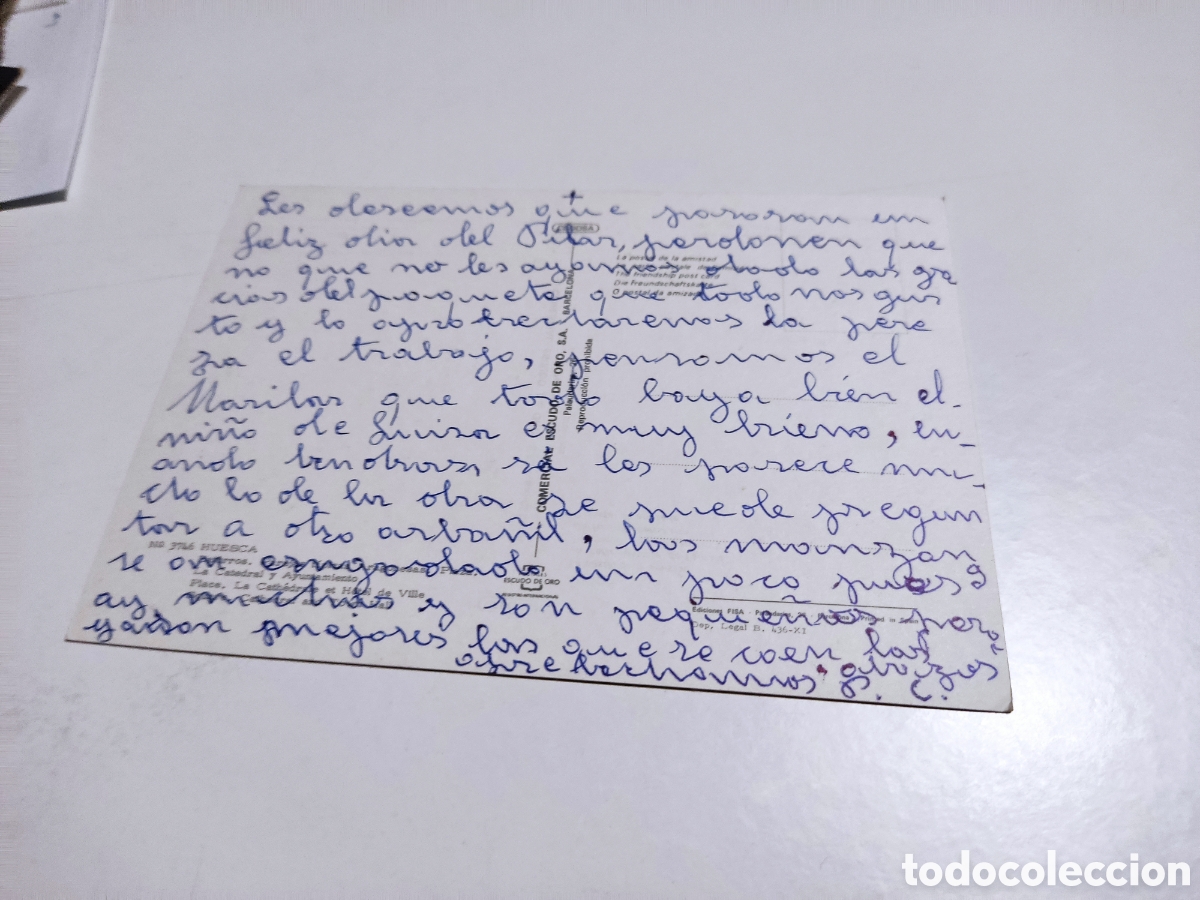 +
Les deseamos que pasaran un
feliz dia del Pilar, perdonen que
no que no les ayamos dado las gra
cias del paquete que todo nos gus
to y lo aprobecharemos la pere
za el trabajo, pensamos el
Marilar que todo baya bién el
niño de Luisa es muy bueno, cu-
ando bendras, si les parece mu-
cho lo de la obra se puede pregun
tar a otro arbañil, las manzan
se an engordado un poco pues
ay muchas y son pequeñas, pero
yason mejores las que se caen las
aprebechamos, G. C.
La postal de la amistad
The friendship post card
Die freundschaftskarte
O postal da amizade
COMERCIAL ESCUDO DE ORO, S.A. BARCELONA
Reproducción prohibida
No 7746 HUESCA
La Catedral y Ayuntamiento
Place. La Cathédrale et Hôtel de Ville
ESCUDO DE ORO
Ediciones FISA - Printed in Spain
Dep. Legal B. 436-XI
todocoleccion